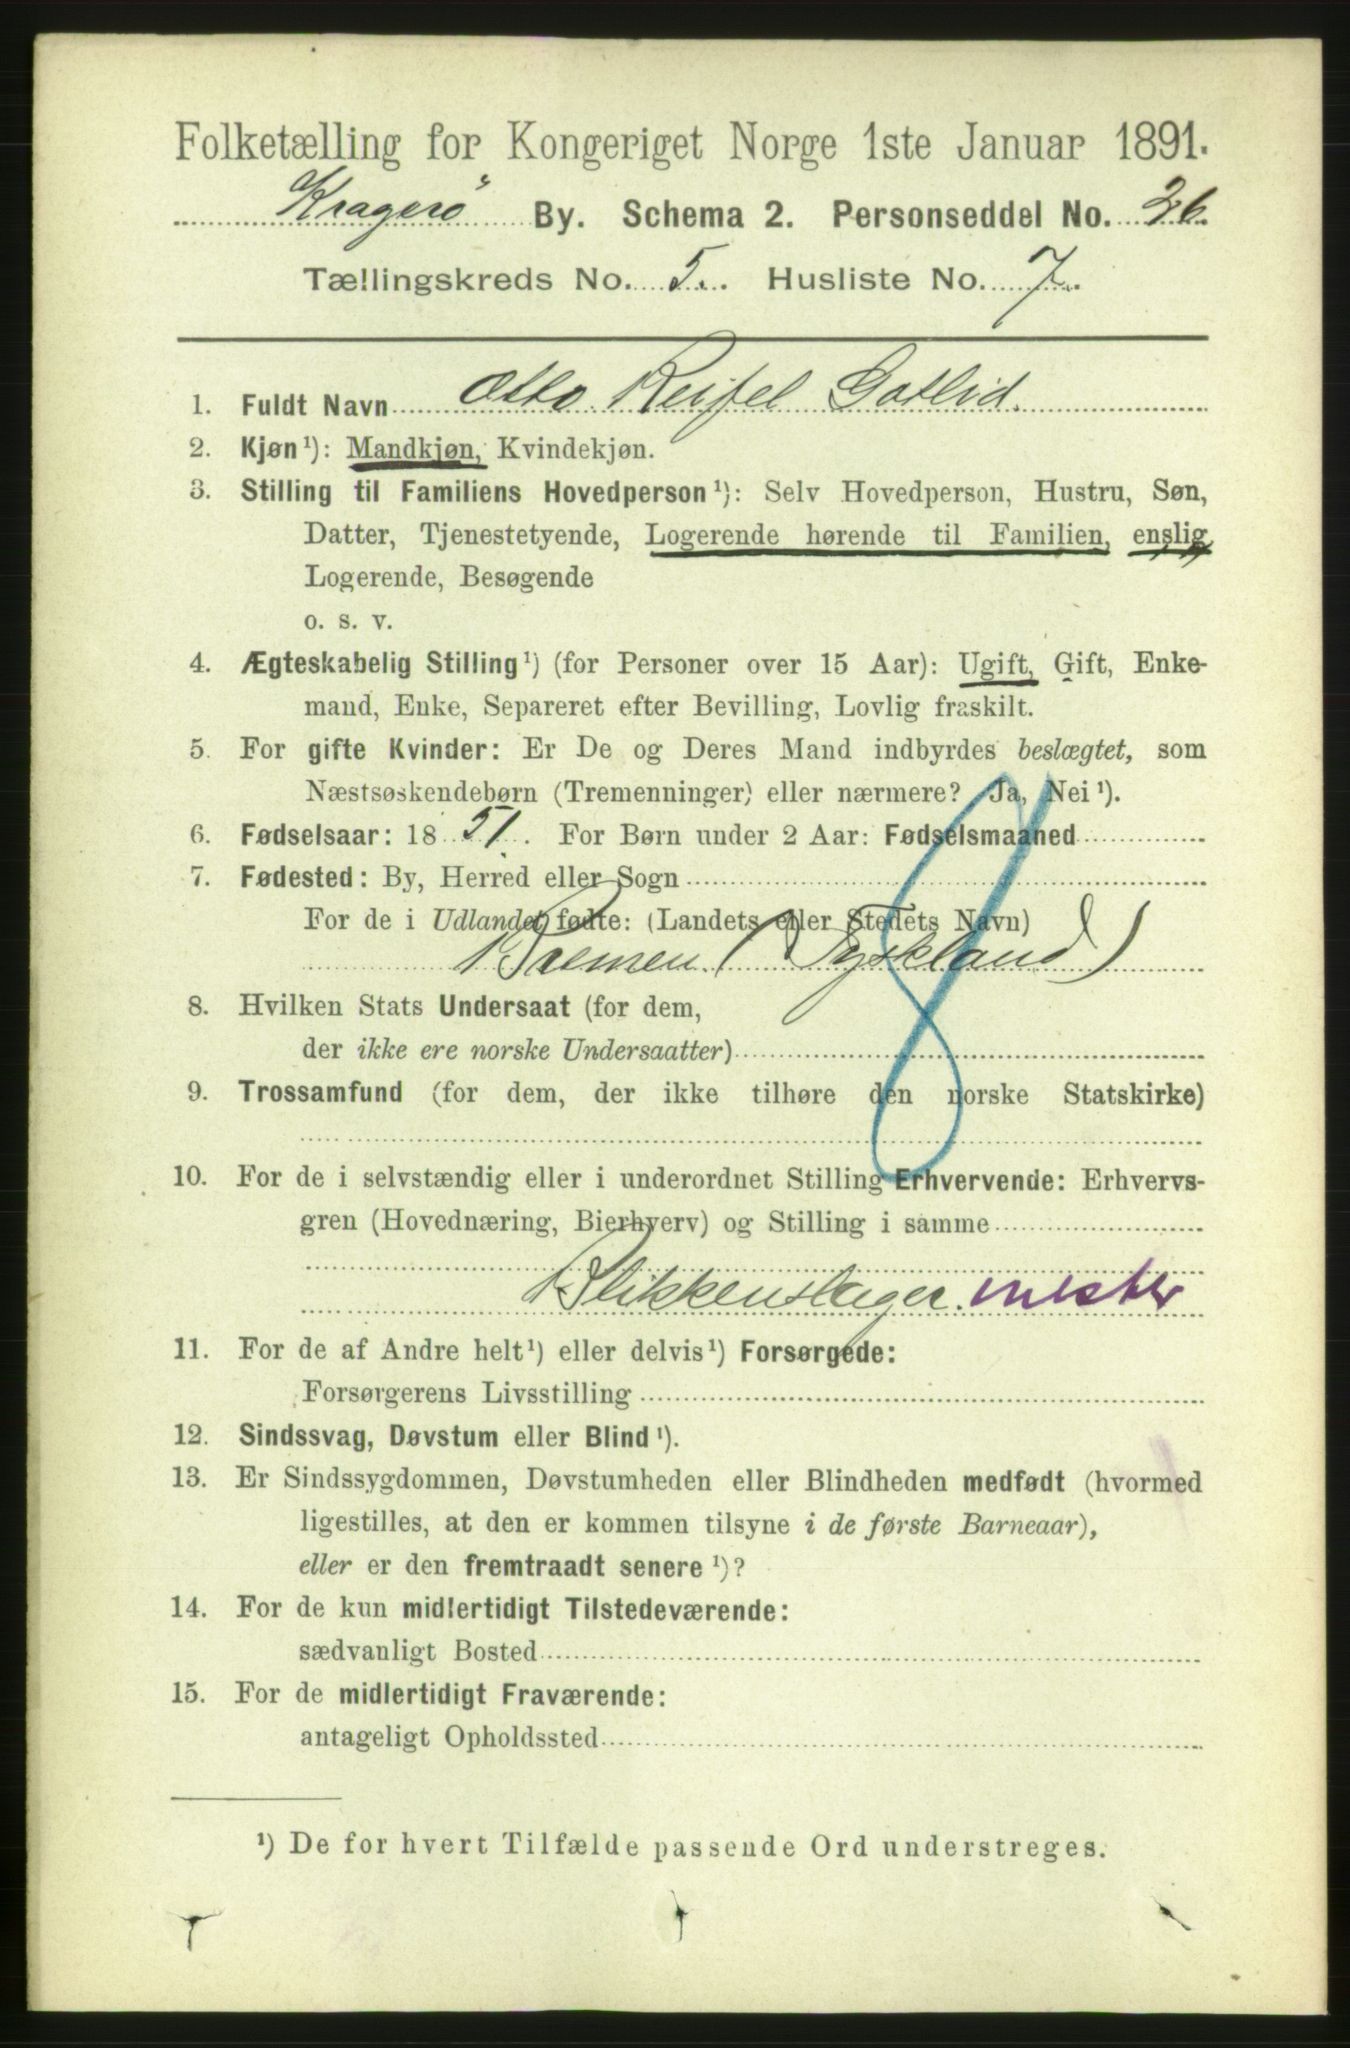 Folketælling for Kongeriget Norge 1ste Januar 1891.
Kragerö By. Schema 2. Personseddel No. 26.
Tællingskreds No. 5. Husliste No. 7.
1. Fuldt Navn Otto Reifel Gotlid.
2. Kjøn¹): Mandkjøn, Kvindekjøn.
3. Stilling til Familiens Hovedperson¹): Selv Hovedperson, Hustru, Søn,
Datter, Tjenestetyende, Logerende hørende til Familien, enslig
Logerende, Besøgende
o. s. v.
4. Ægteskabelig Stilling¹) (for Personer over 15 Aar): Ugift, Gift, Enke-
mand, Enke, Separeret efter Bevilling, Lovlig fraskilt.
5. For gifte Kvinder: Er De og Deres Mand indbyrdes beslægtet, som
Næstsøskendebørn (Tremenninger) eller nærmere? Ja, Nei¹).
6. Fødselsaar: 1851. For Børn under 2 Aar: Fødselsmaaned
7. Fødested: By, Herred eller Sogn
For de i Udlandet fødte: (Landets eller Stedets Navn)
Bremen (Tyskland)
8. Hvilken Stats Undersaat (for dem,
der ikke ere norske Undersaatter)
9. Trossamfund (for dem, der ikke tilhøre den norske Statskirke)
10. For de i selvstændig eller i underordnet Stilling Erhvervende: Erhvervs-
gren (Hovednæring, Bierhverv) og Stilling i samme
Blikkenslager. mester
11. For de af Andre helt¹) eller delvis¹) Forsørgede:
Forsørgerens Livsstilling
12. Sindssvag, Døvstum eller Blind¹).
13. Er Sindssygdommen, Døvstumheden eller Blindheden medfødt (hvormed
ligestilles, at den er kommen tilsyne i de første Barneaar),
eller er den fremtraadt senere¹)?
14. For de kun midlertidigt Tilstedeværende:
sædvanligt Bosted
15. For de midlertidigt Fraværende:
antageligt Opholdssted
¹) De for hvert Tilfælde passende Ord understreges.